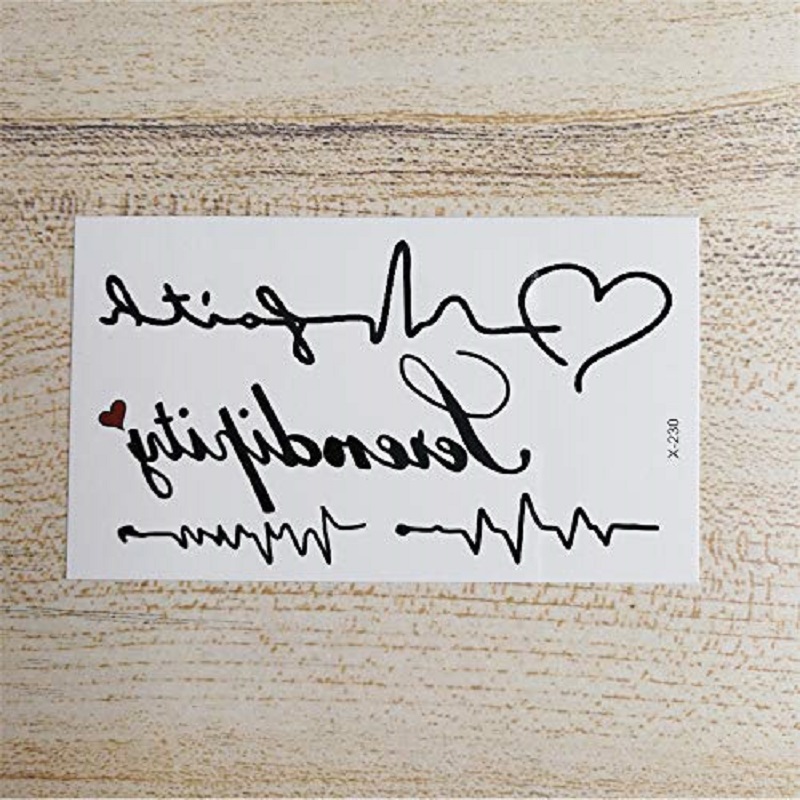 faith
Serendipity
X-230